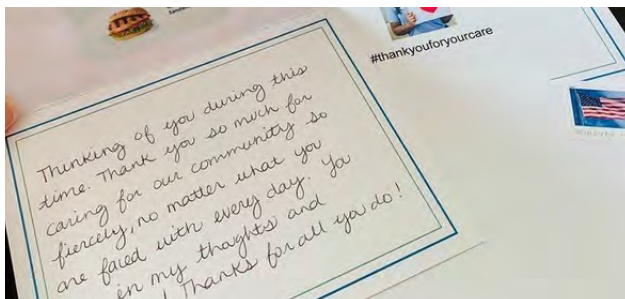 #thankyouforyourcare
Thinking of you during this
time. Thank you so much for
caring for our community so
fiercely, no matter what you
are faced with every day. You
in my thoughts and
! Thanks for all you do!